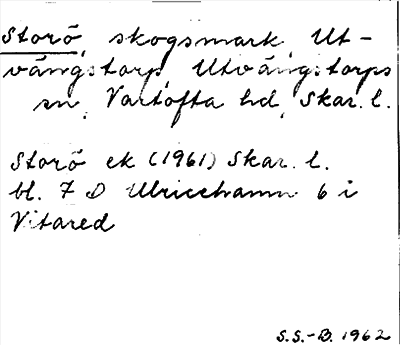 Storö, skogsmark, Ut-
vängstorp, Utvängstorps
sn, Vartofta hd, Skar. l.
Storö ek (1961) Skar. l.
bl. 7 D Ulricehamn 6 i
Vitared
S.S.-B. 1962